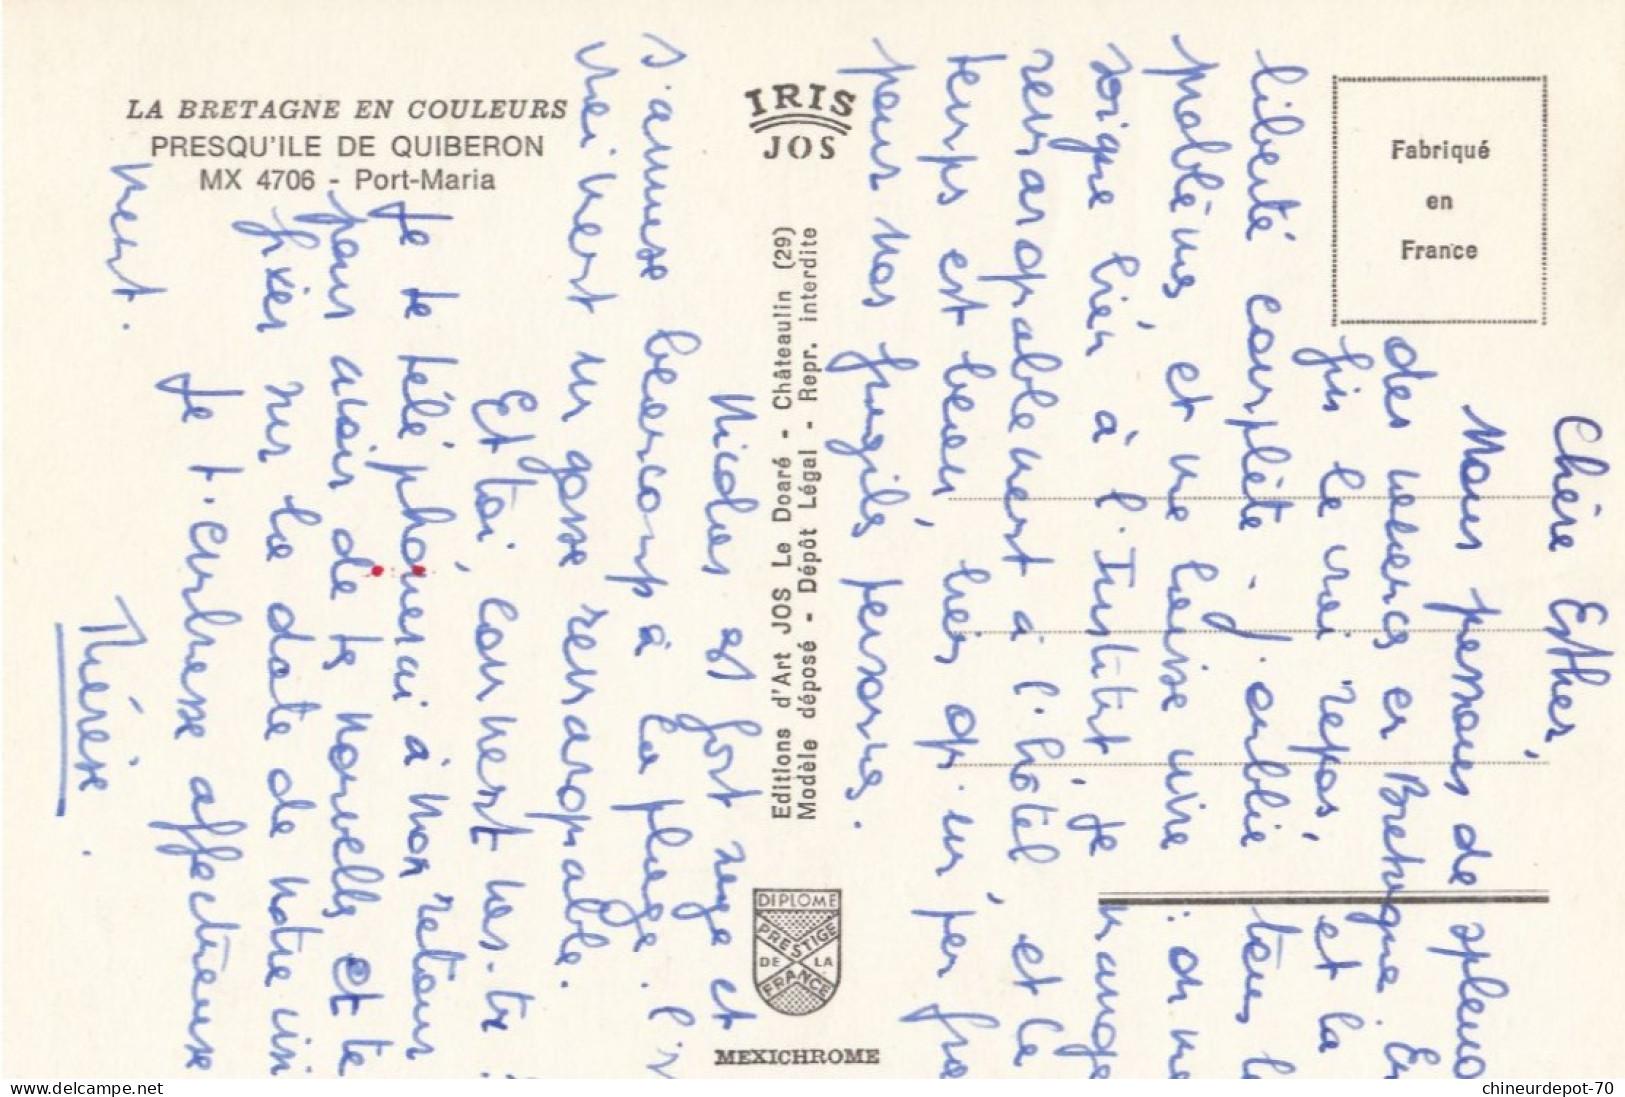 LA BRETAGNE EN COULEURS
PRESQU'ILE DE QUIBERON
MX 4706 - Port-Maria
IRIS
JOS
Fabriqué
en
France
Editions d'Art JOS Le Doaré - Châteaulin (29)
Modèle déposé - Dépôt Légal - Repr. interdite
DIPLOME
PRESTIGE
DE LA
FRANCE
MEXICHROME
Chère Esther,
Nous passons de splend
des vacances en Bretagne. En
fin le vrai repos, et la
liberté complète. J'oublie tous l
problèmes et me laisse vivre : on me
soigne bien à l'Institut, je mange
remarquablement à l'hôtel et le
temps est beau, bien qu'un peu fra
pour nos fragiles personnes.
Nicolas est fort sage et
s'amuse beaucoup à la plage. l'
vraiment un gosse remarquable.
Et toi, comment vas-tu ?
Je te téléphonerai à mon retour
pour avoir de tes nouvelles et te
fixer sur la date de notre
ment.
Je t'embrasse affectueuse
Thérèse.
delcampe.net
chineurdepot-70